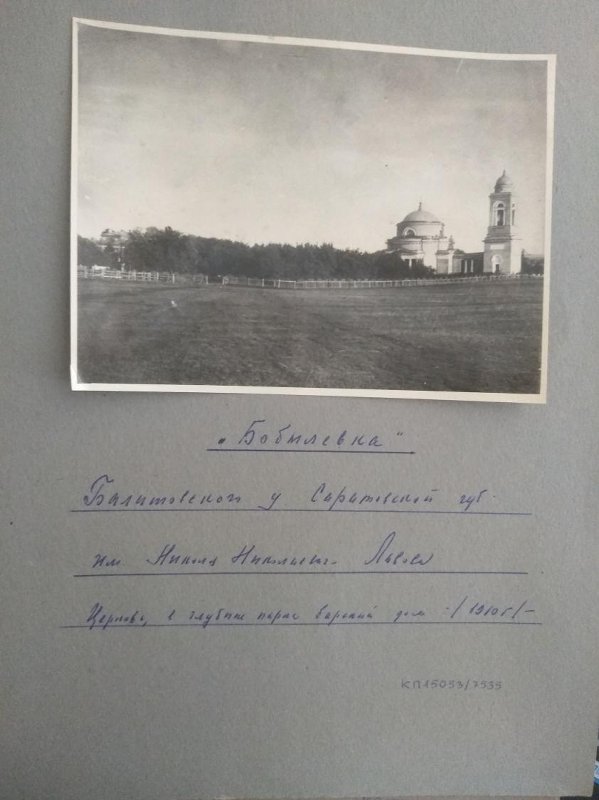 „Бобылевка"
Балашовского у Саратовской губ.
им. Николая Николаевича Львова
Церковь, в глубине парка барский дом -/1910г/-
КП15053/7535